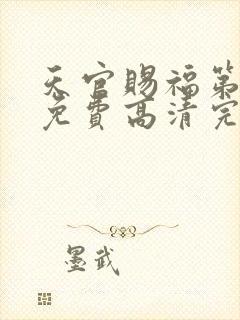 天官赐福第
免费高清完
墨武